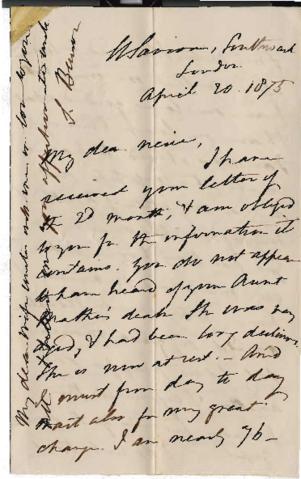 St Saviours, Southwark
London
April 20. 1875
My dear niece,
I have
received your letter of
the 2d month, & am obliged
to you for the information it
contains. You do not appear
to have heard of your Aunt
death. She was very
aged, & had been long declining.
She is now at rest. — And
I must from day to day
wait also for my great
change. I am nearly 76 —
My dear wife unites with me in love to you
S. Benson